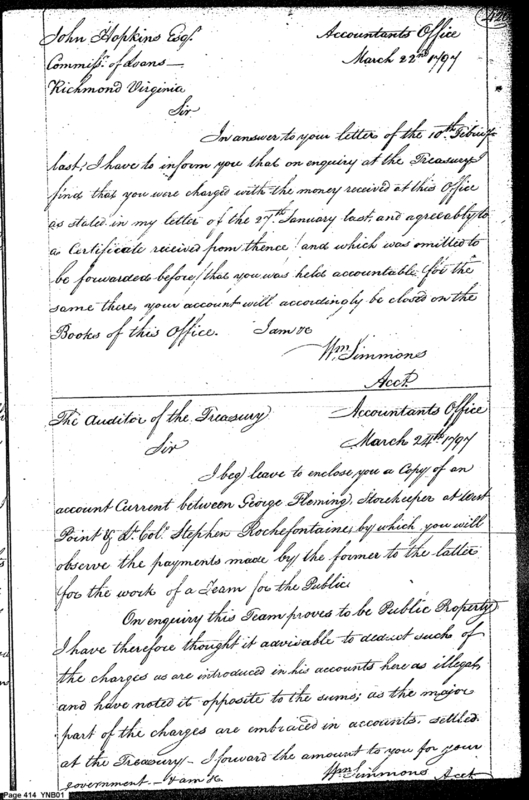 420
John Hopkins Esqr. Accountants Office
Commissr. of Loans — March 22nd 1797
Richmond Virginia
Sir
In answer to your letter of the 10th Februy.
last, I have to inform you that on enquiry at the Treasury I
find that you were charged with the money received at this Office
as stated in my letter of the 27th January last and agreeably to
a Certificate received from thence (and which was omitted to
be forwarded before) that you was held accountable for the
same there, your account will accordingly be closed on the
Books of this Office. I am &c
Wm. Simmons
Acct.
The Auditor of the Treasury Accountants Office
Sir March 24th 1797
I beg leave to enclose you a Copy of an
account Current between George Fleming, Storekeeper at West
Point & Lt. Col. Stephen Rochefontaine, by which you will
observe the payments made by the former to the latter
for the work of a Team for the Public
On enquiry this Team proves to be Public Property
I have therefore thought it advisable to deduct such of
the charges as are introduced in his accounts here as illegal,
and have noted it opposite to the sums; as the major
part of the charges are embraced in accounts settled
at the Treasury — I forward the amount to you for your
government — I am &c. Wm. Simmons Acct
Page 414 YNB01